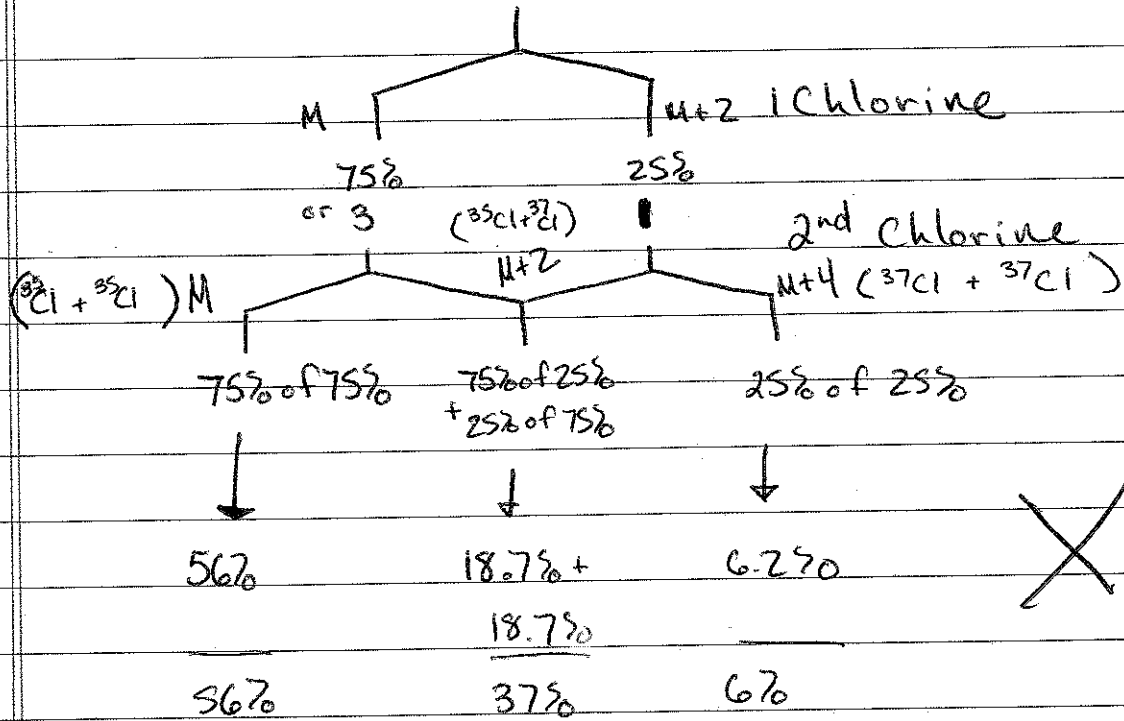 M M+2 1 Chlorine
75% 25%
or 3 (³⁵Cl+³⁷Cl) 1 2nd Chlorine
(³⁵Cl + ³⁵Cl) M M+2 M+4 (³⁷Cl + ³⁷Cl)
75% of 75% 75% of 25% 25% of 25%
+ 25% of 75%
56% 18.7% + 6.2%
18.7%
56% 37% 6%